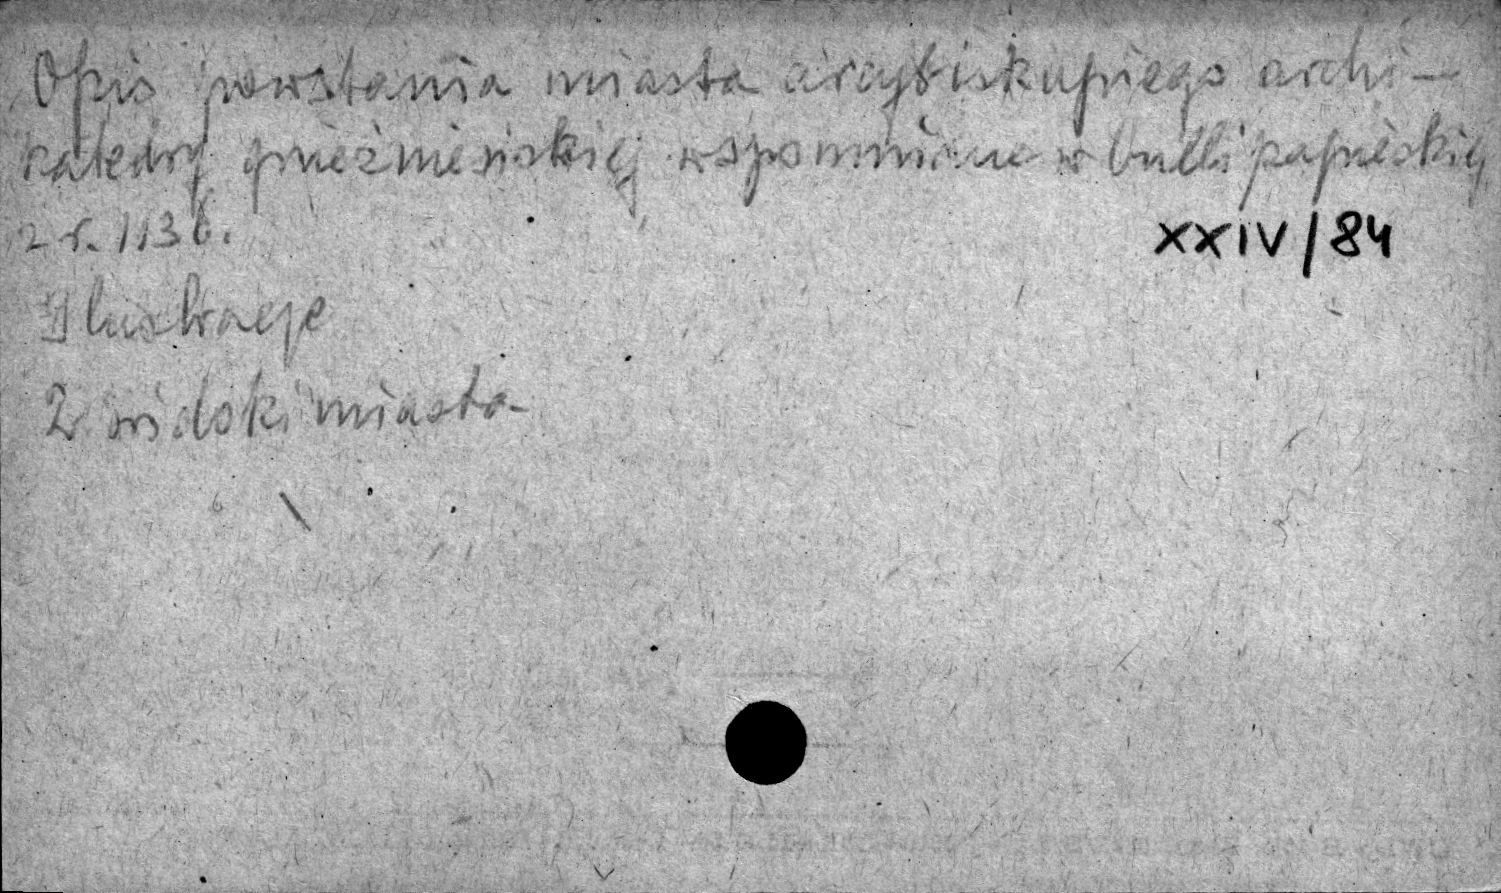 Opis powstania miasta arcybiskupiego archi-
katedry gnieźnieńskiej wspomniane w bulli papieskiej
z r. 1136.
XXIV/84
Ilustracje
2 widoki miasta